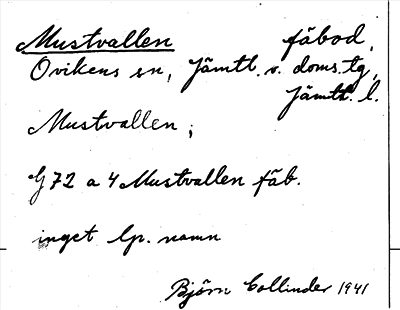 Mustvallen fäbod,
Ovikens sn, Jämtl. v. doms.tg,
Jämtl. l.
Mustvallen;
G 72 a 4 Mustvallen fäb.
inget lp. namn
Björn Collinder 1941